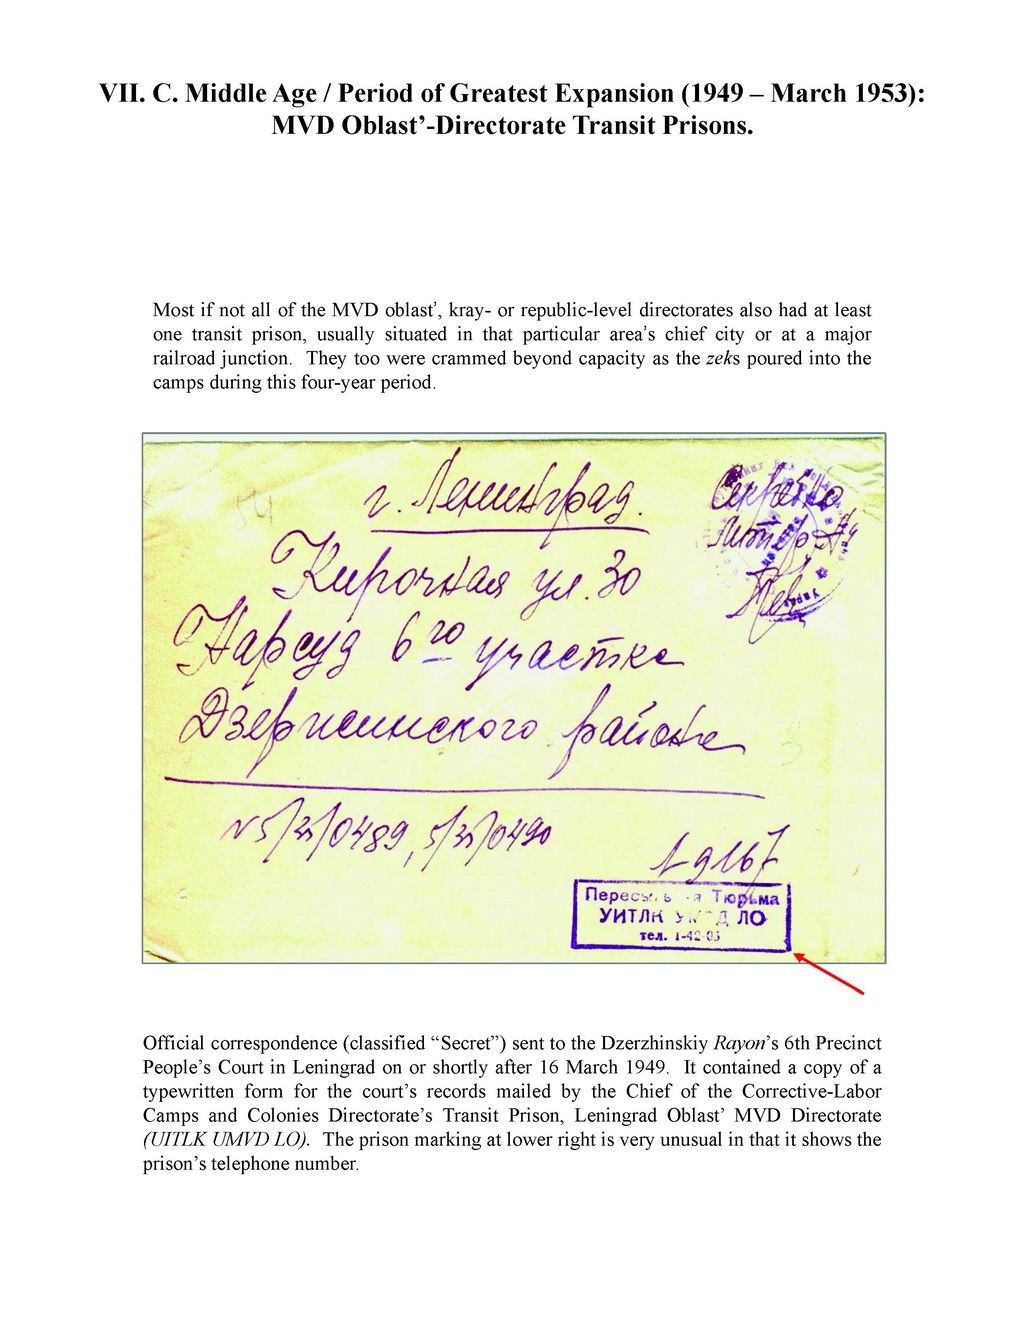 VII. C. Middle Age / Period of Greatest Expansion (1949 – March 1953):
MVD Oblast’-Directorate Transit Prisons.
Most if not all of the MVD oblast’, kray- or republic-level directorates also had at least
one transit prison, usually situated in that particular area’s chief city or at a major
railroad junction. They too were crammed beyond capacity as the zeks poured into the
camps during this four-year period.
г. Ленинград.
Секретно
Литер "А"
Кирочная ул. 30
Нарсуд 6го участка
Дзержинского района
N 5/21/0489, 5/21/0490
1-9167
Тюрьма
УИТЛК ЛО
тел. 1-42-03
Official correspondence (classified “Secret”) sent to the Dzerzhinskiy Rayon’s 6th Precinct
People’s Court in Leningrad on or shortly after 16 March 1949. It contained a copy of a
typewritten form for the court’s records mailed by the Chief of the Corrective-Labor
Camps and Colonies Directorate’s Transit Prison, Leningrad Oblast’ MVD Directorate
(UITLK UMVD LO). The prison marking at lower right is very unusual in that it shows the
prison’s telephone number.